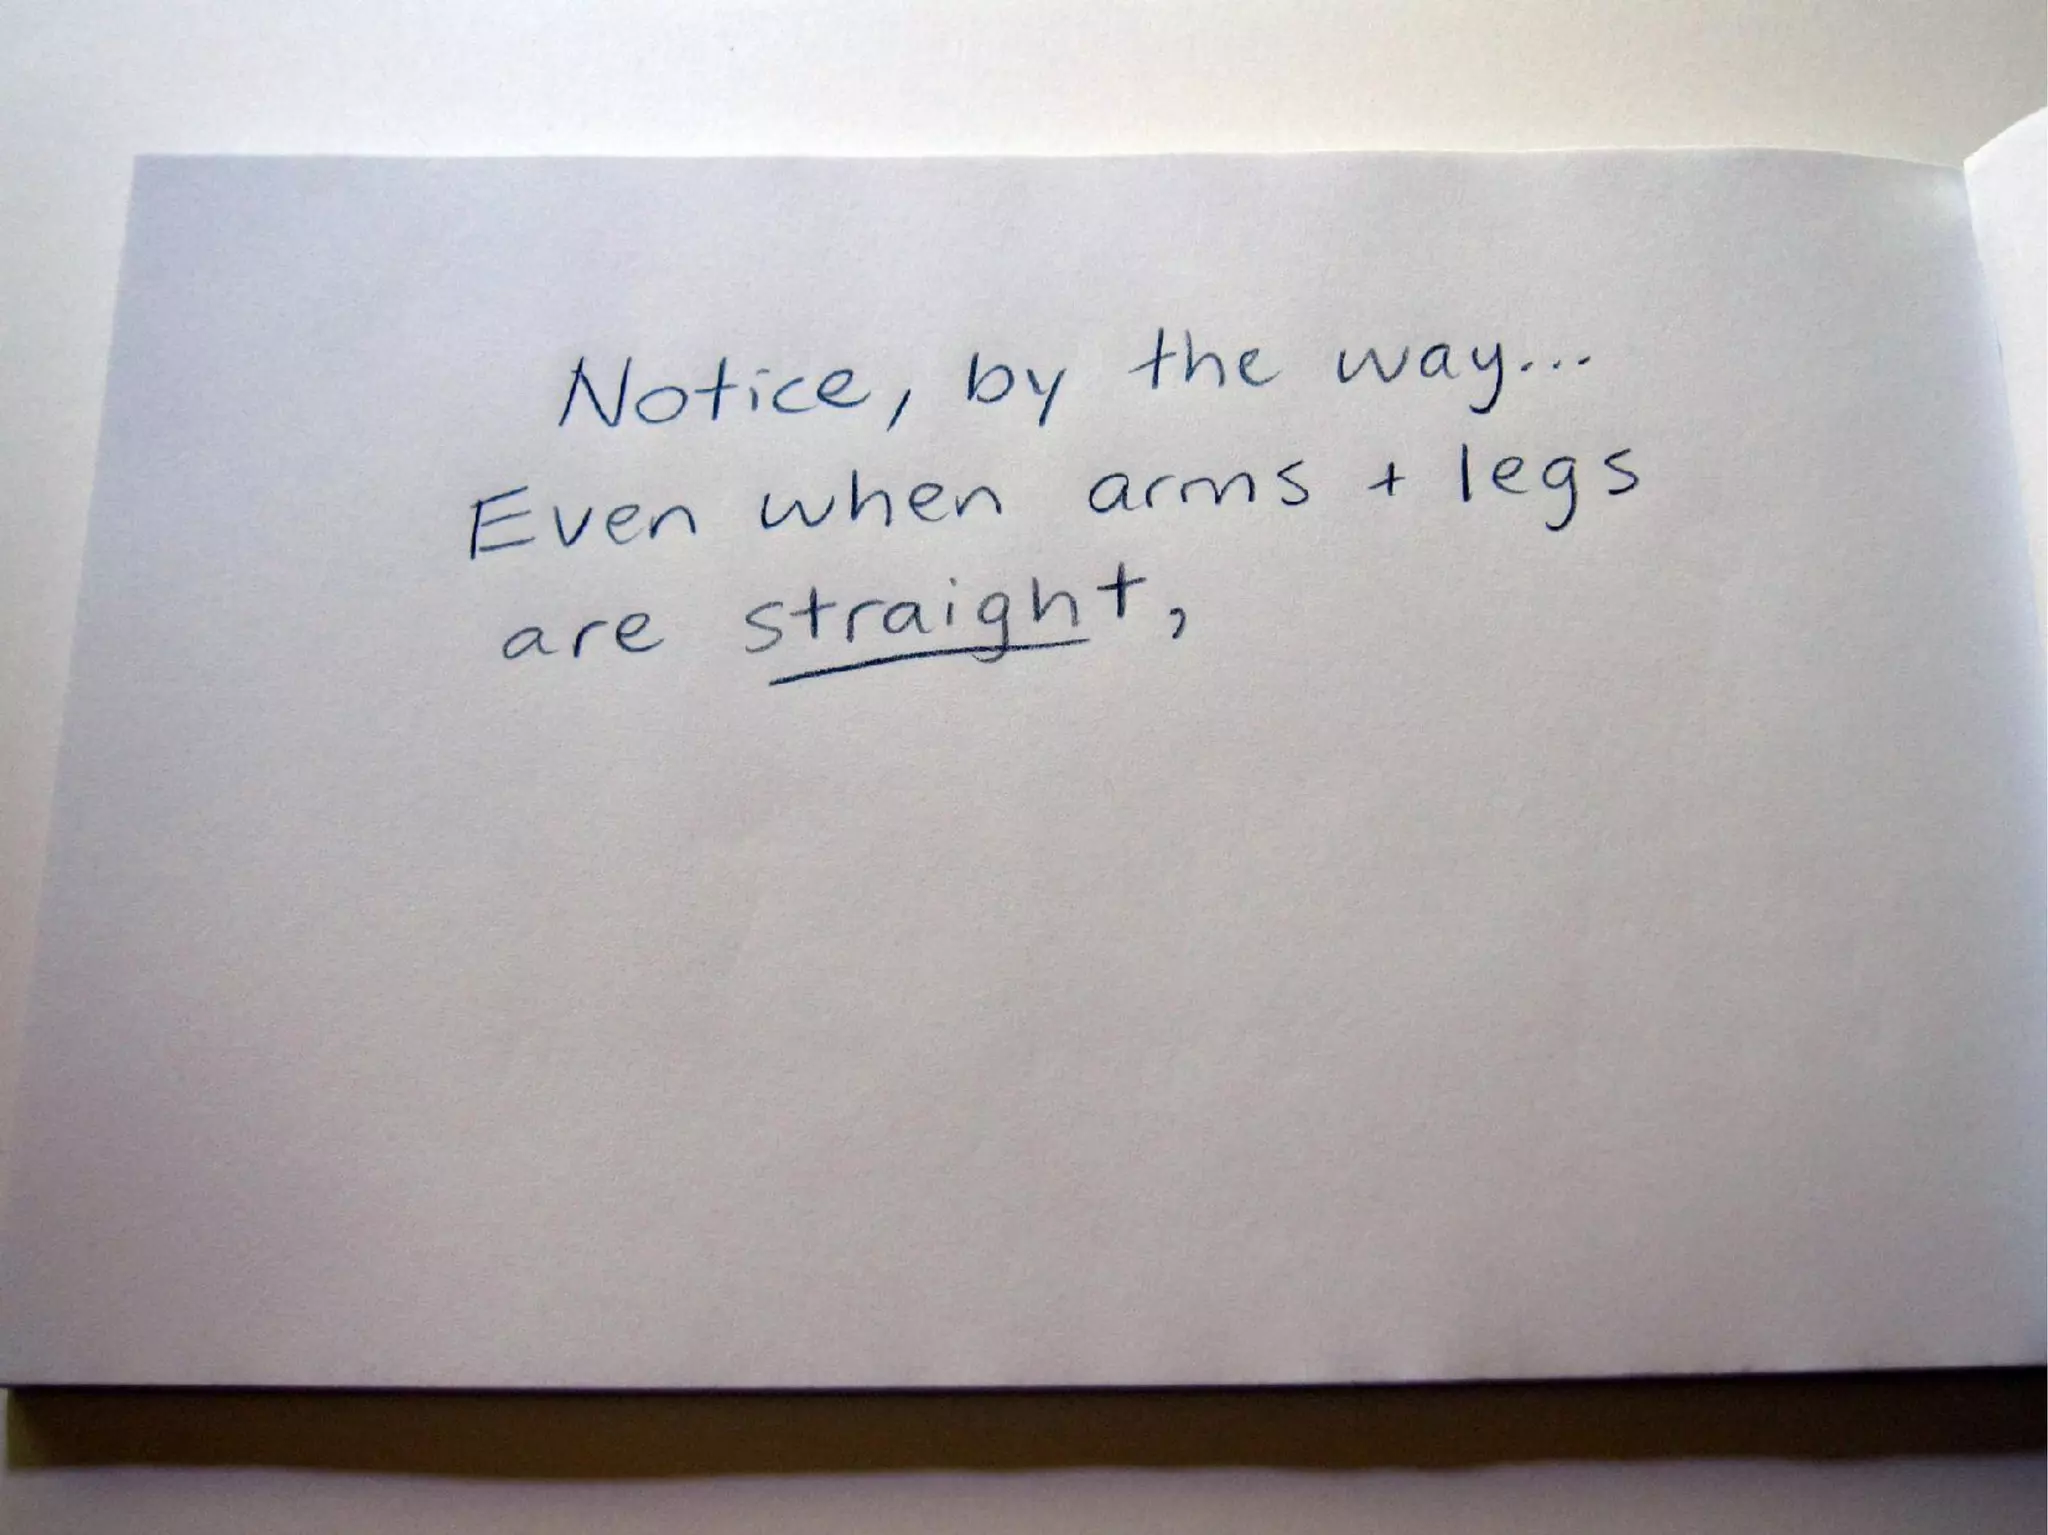 Notice, by the way...
Even when arms + legs
are straight,